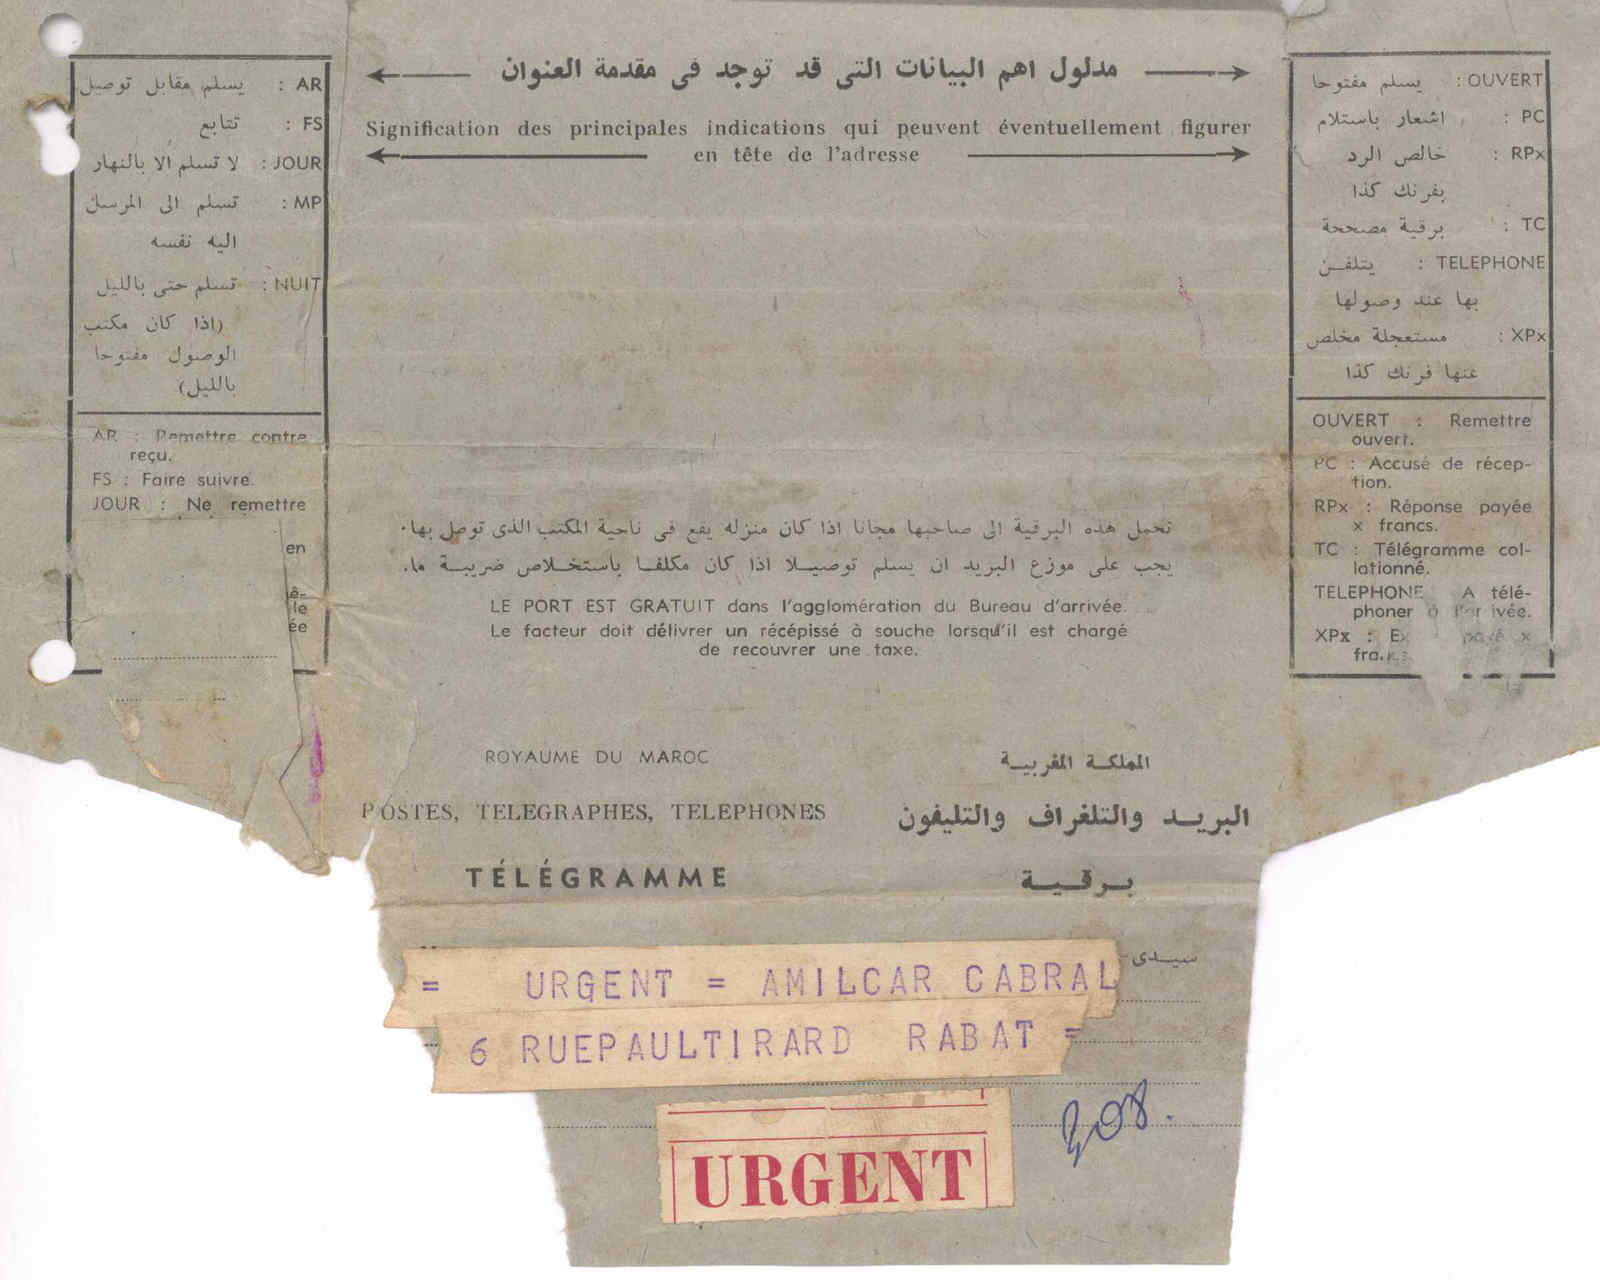 مدلول اهم البيانات التى قد توجد فى مقدمة العنوان
Signification des principales indications qui peuvent éventuellement figurer
en tête de l'adresse
AR : يسلم مقابل توصيل
FS : تتابع
JOUR : لا تسلم ألا بالنهار
MP : تسلم الى المرسل
اليه نفسه
NUIT : تسلم حتى بالليل
(اذا كان مكتب
الوصول مفتوحا
بالليل)
AR : Remettre contre
reçu.
FS : Faire suivre.
JOUR : Ne remettre
en
ê-
le
ée
OUVERT : يسلم مفتوحا
PC : اشعار باستلام
RPx : خالص الرد
بفرنك كذا
TC : برقية مصححة
TELEPHONE : يتلفن
بها عند وصولها
XPx : مستعجلة مخلص
عنها فرنك كذا
OUVERT : Remettre
ouvert.
PC : Accusé de récep-
tion.
RPx : Réponse payée
x francs.
TC : Télégramme col-
lationné.
TELEPHONE A télé-
phoner à l'arrivée.
XPx : Ex payé x
francs.
تحمل هذه البرقية الى صاحبها مجانا اذا كان منزله يقع فى ناحية المكتب الذى توصل بها.
يجب على موزع البريد ان يسلم توصيلا اذا كان مكلفا باستخلاص ضريبة ما.
LE PORT EST GRATUIT dans l'agglomération du Bureau d'arrivée.
Le facteur doit délivrer un récépissé à souche lorsqu'il est chargé
de recouvrer une taxe.
ROYAUME DU MAROC
المملكة المغربية
POSTES, TELEGRAPHES, TELEPHONES
البريد والتلغراف والتليفون
TÉLÉGRAMME
برقية
سيدى
= URGENT = AMILCAR CABRAL
6 RUEPAULTIRARD RABAT =
URGENT